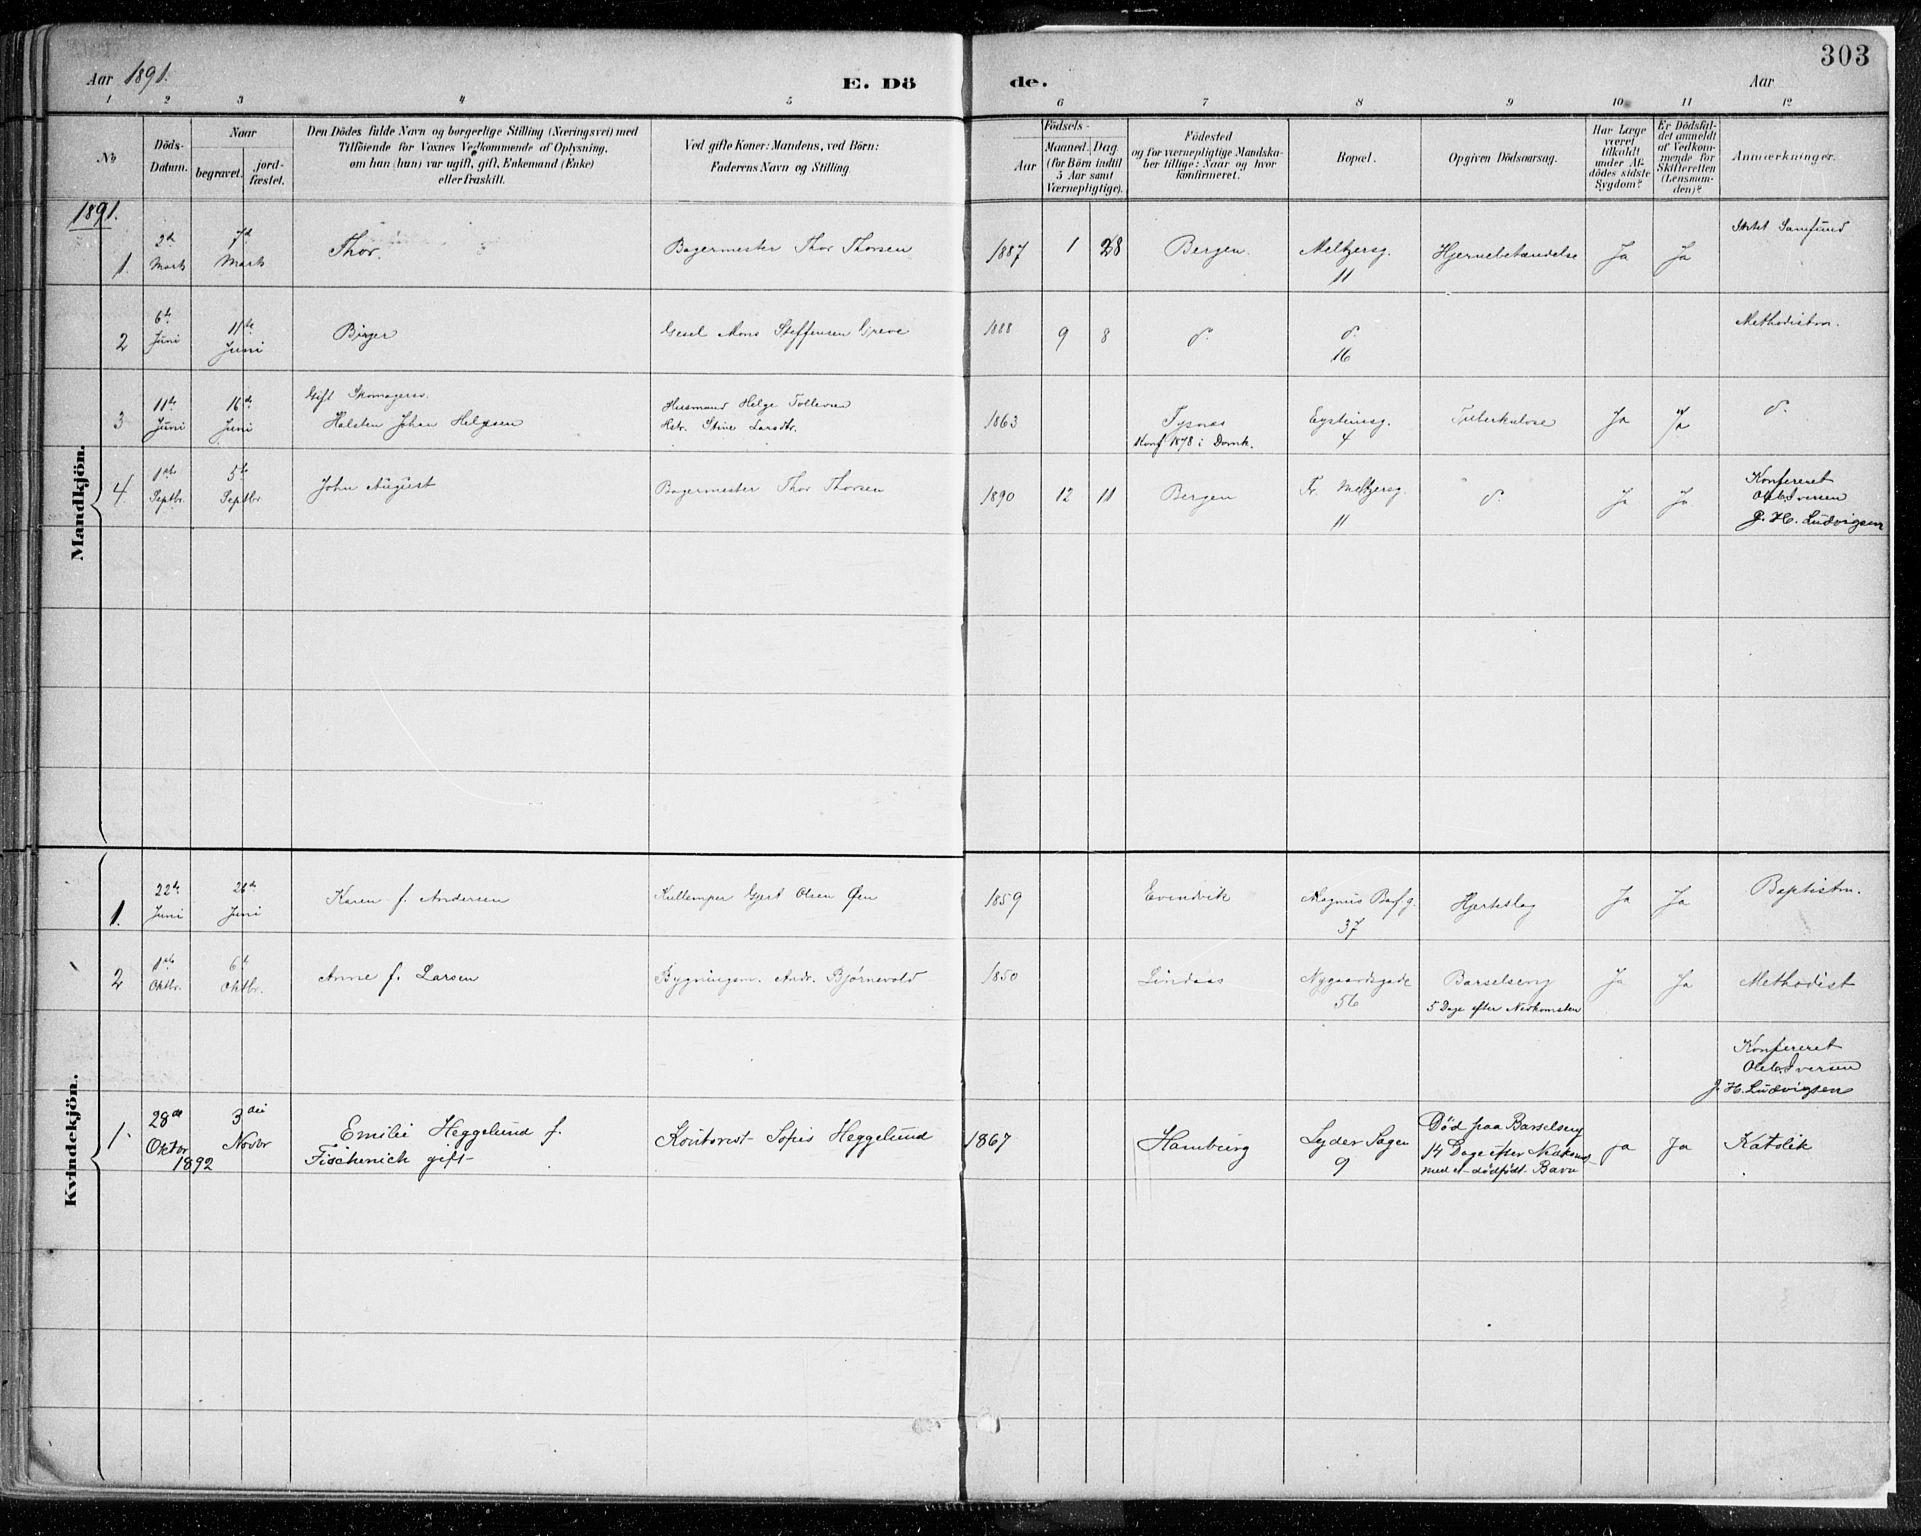 303
Aar 1891.
E. Dö
de.
Aar
1 2 3 4 5 6 7 8 9 10 11 12
No
Döds-
Datum.
Naar
begravet.
jord-
fæstet.
Den Dödes fulde Navn og borgerlige Stilling (Næringsvei) med
Tilföiende for Voxnes Vedkommende af Oplysning,
om han (hun) var ugift, gift, Enkemand (Enke)
eller fraskilt.
Ved gifte Koner: Mandens, ved Börn:
Faderens Navn og Stilling.
Födsels-
Aar
Maaned. Dag.
(for Börn indtil
5 Aar samt
Værnepligtige).
Födested
og for værnepligtige Mandska-
ber tillige: Naar og hvor
konfirmeret.
Bopæl.
Opgiven Dödsaarsag.
Har Læge
været
tilkaldt
under Af-
dödes sidste
Sygdom?
Er Dödsfal-
det anmeldt
af Vedkom-
mende for
Skifteretten
(Lensman-
den)?
Anmærkninger.
1891.
Mandkjön.
1. 2den Marts 7de Marts Thor. Bagermester Thor Thorsen 1887 1 28 Bergen. Meltzersg. 11 Hjernebetændelse Ja Ja Samfund
2 6te Juni 11te Juni Birger Mons Steffensen Greve 1888 9 8 d. d. 16 Methodistm.
3 11te Juni 16de Juni Gift Skomagersv.
Halsten Johan Helgesen
Husmand Helge Tollevsen
Hstr. Stine Larsdtr.
1863 Tysnes
Konf 1878 i Domk.
Eysteinsg. 4 Tuberkulose Ja Ja d.
4. 1ste Septbr. 5te Septbr John August Bagermester Thor Thorsen 1890 12 11 Bergen Fr. Meltzersg. 11 d. Ja Ja
Konfereret
Ole Iversen
J. H. Ludvigsen
Kvindekjön.
1. 22de Juni 26de Juni Karen f. Andersen Kullemper Gjert Olsen Øen 1859 Evendvik Magnus Barf. g. 37 Hjerteslag Ja Ja Baptistm.
2 1ste Oktbr. 6te Oktbr. Anne f. Larsen Bygningsm. Andr. Bjørnevold 1850 Lindaas Nygaardsgade 56 Barselseng
5 Dage efter Nedkomsten
Ja Ja Methodist
Konfereret
Ole Iversen
J. H. Ludvigsen
1. 28de Oktbr 1892 3die Novbr Emilie Heggelund f.
Fischenich gift
Kontorist Heggelund 1867 Hamburg Lyder Sagen 9
Død paa Barselseng
14 Dage efter Nedkomst
med et dødfødt Barn
ja Ja Katolik